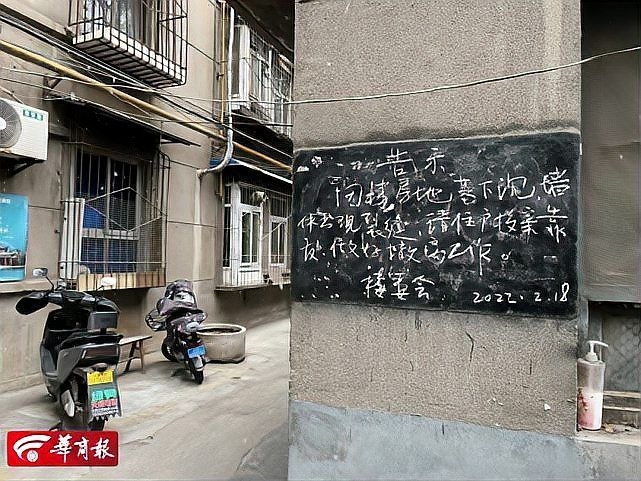 告示
因楼房地基下沉,墙
体出现裂缝,请住户投亲靠
友,做好撤离工作。
楼委会 2022.2.18
華商報